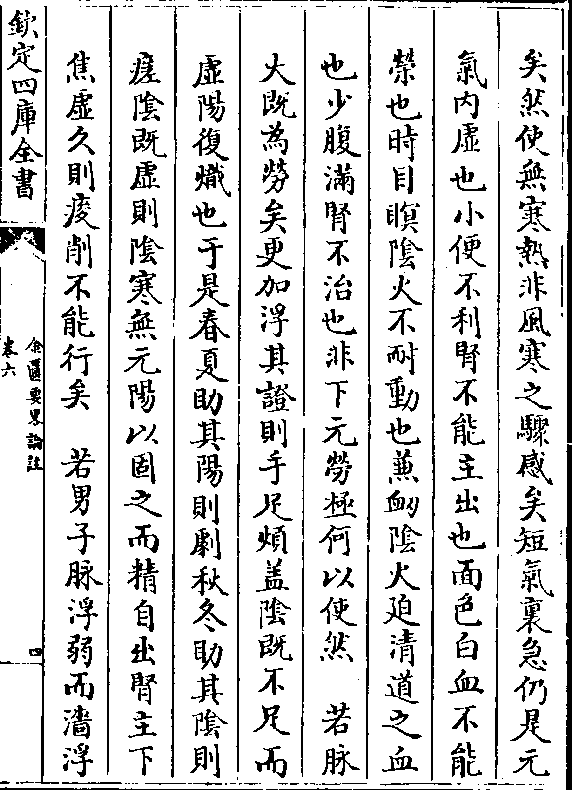 矣然使無寒熱非風寒之驟感矣短氣裏急仍是元
氣内虚也小便不利腎不能主出也面色白血不能
榮也時目瞑陰火不耐動也兼衂陰火迫清道之血
也少腹滿腎不治也非下元勞極何以使然　若脉
大既為勞矣更加浮其證則手足煩盖陰既不足而
虚陽復熾也于是春夏助其陽則劇秋冬助其陰則
瘥陰既虚則陰寒無元陽以固之而精自出腎主下
焦虚久則痠削不能行矣　若男子脉浮弱而濇浮
欽定四庫全書
金匱要畧論註
卷六
四